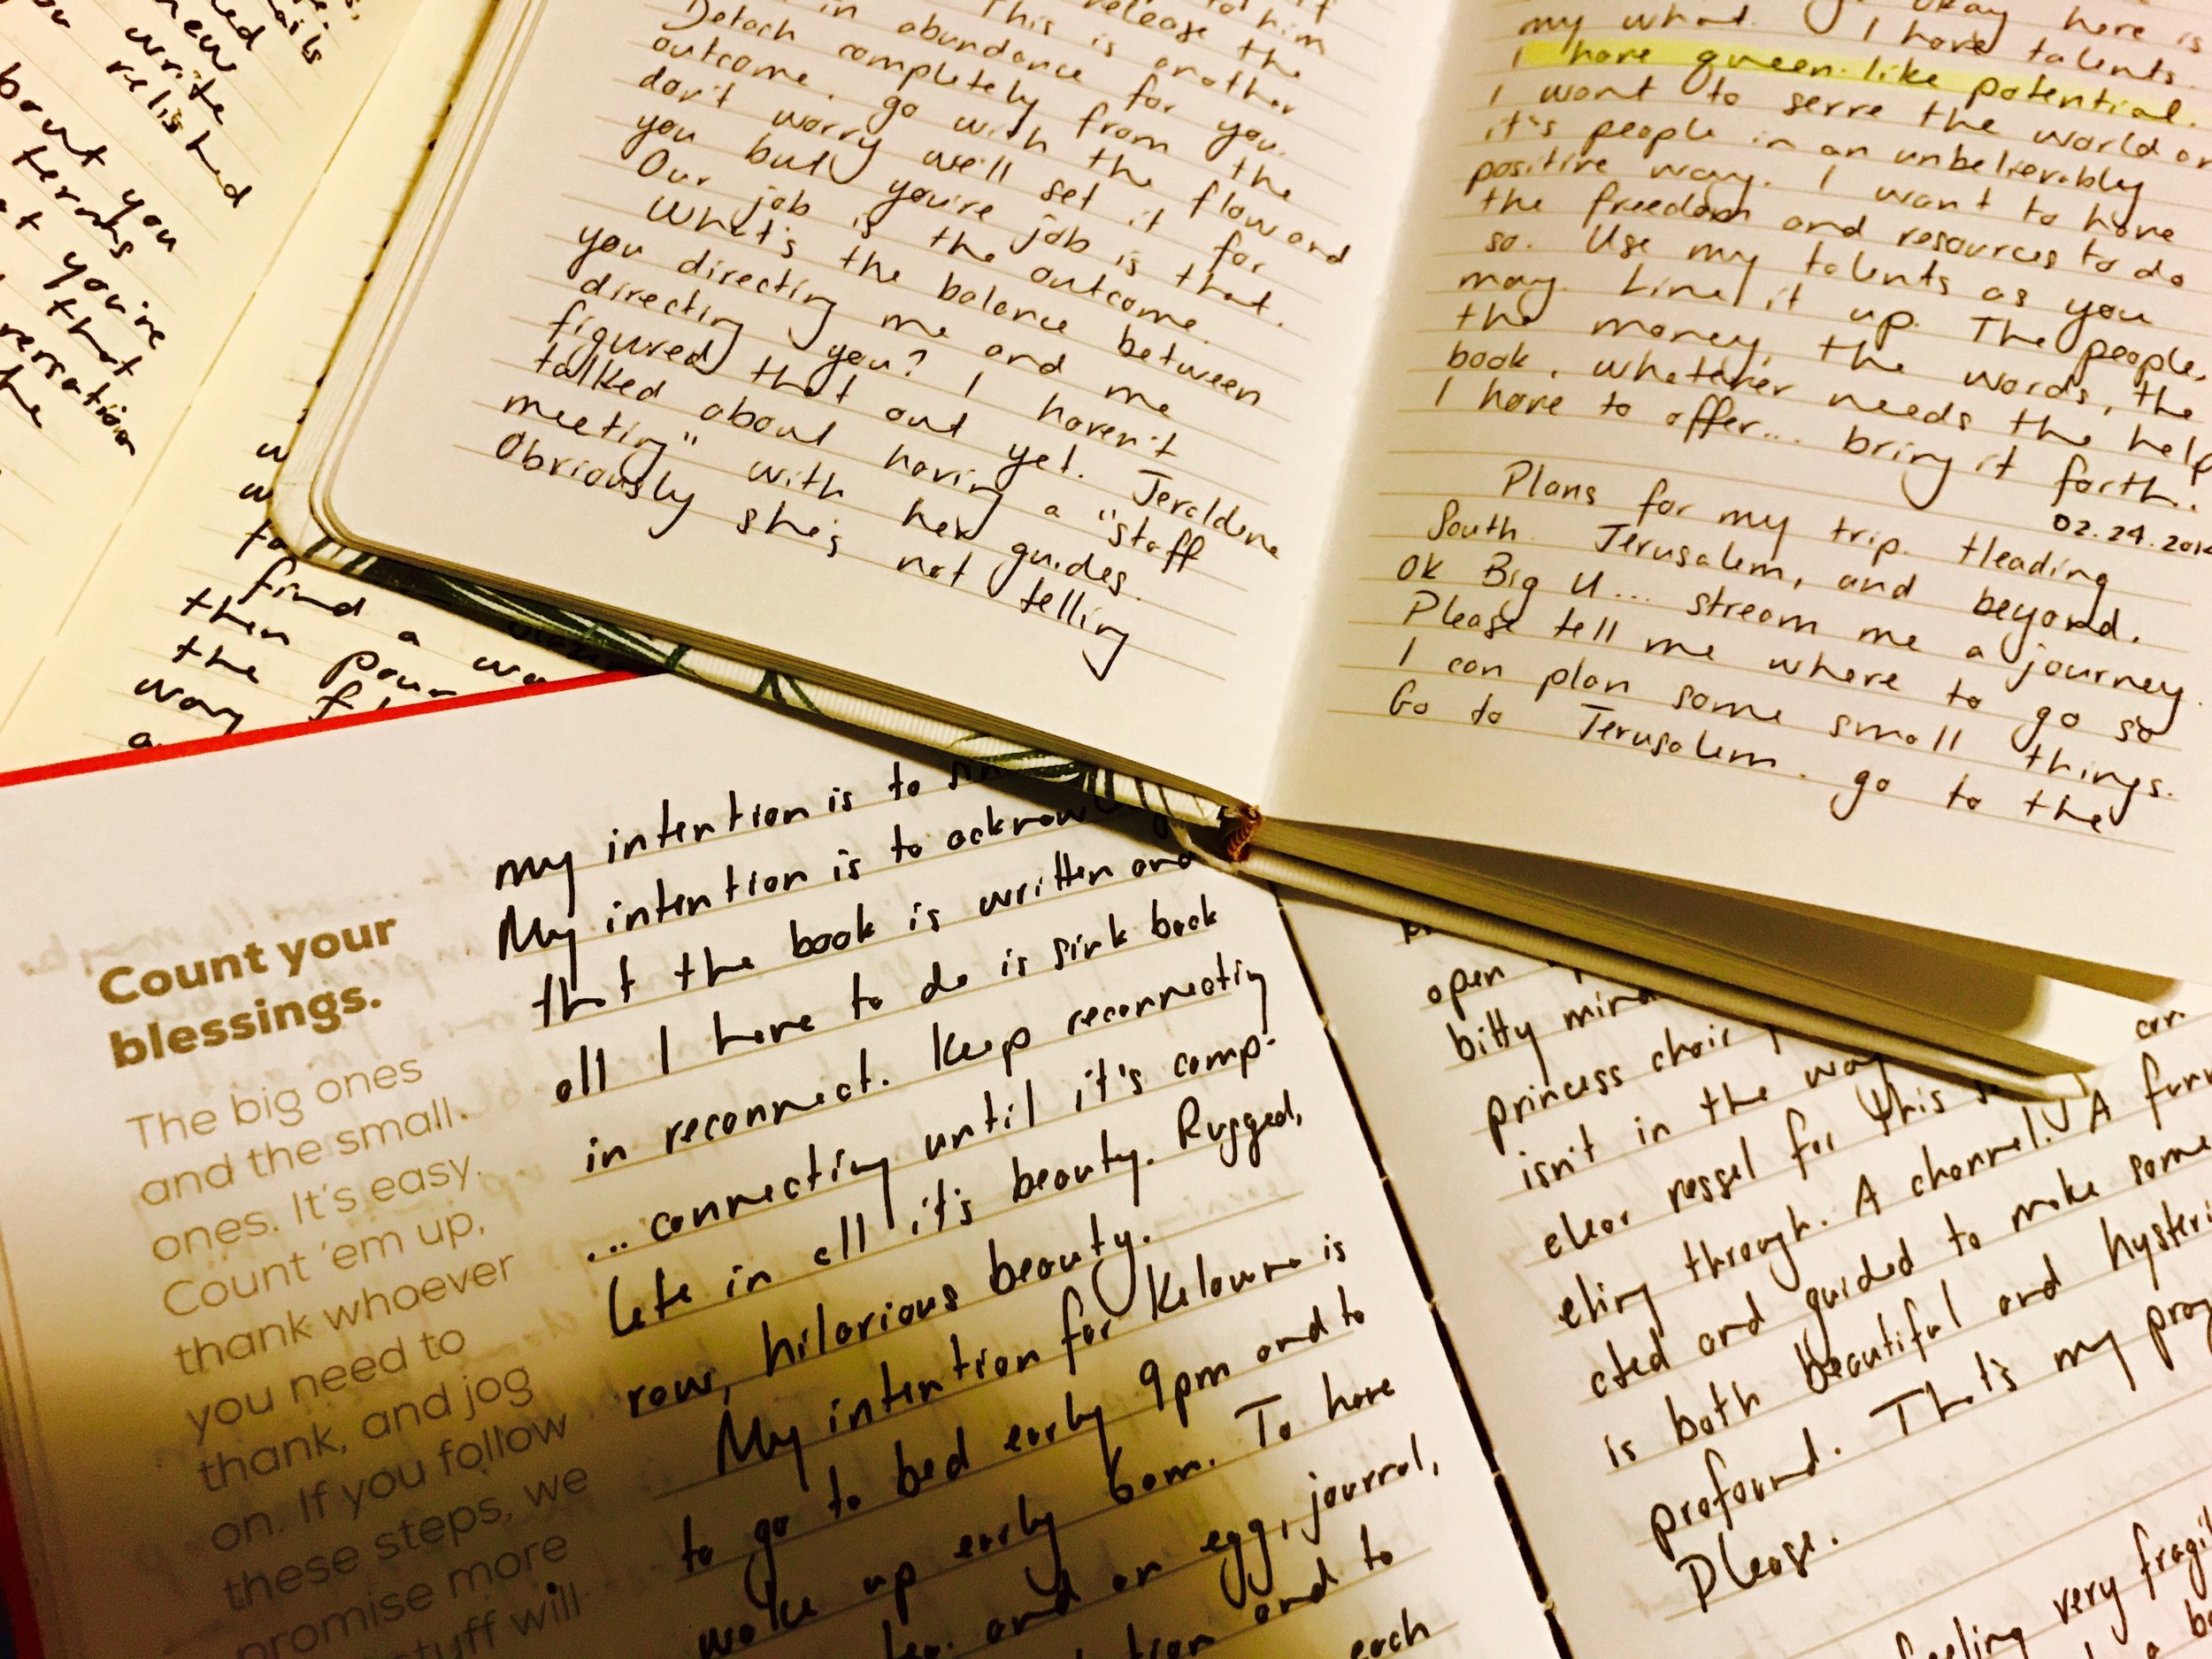 new
write
relished
about you
terms
at you're
that
the
to him
release the
This is another
in abundance for you.
Detach completely from the
outcome. go with the flow and
don't worry we'll set it for
you but you're job is that.
Our job is the outcome.
What's the balance between
you directing me and me
directing you? I haven't
figured that out yet. Jeraldene
talked about having a "staff
meeting" with her guides.
Obviously she's not telling
okay here is
my what. I have talents.
I have queen-like potential.
I want to serve the world or
it's people in an unbelievably
positive way. I want to have
the freedom and resources to do
so. Use my talents as you
may. Line it up. The people,
the money, the words, the
book, whatever needs the help
I have to offer... bring it forth.
02.24.201
Plans for my trip. Heading
South. Jerusalem, and beyond.
OK Big U... stream me a journey.
Please tell me where to go so
I can plan some small things.
Go to Jerusalem. go to the
find a
then pour
the
way
a
Count your
blessings.
The big ones
and the small
ones. It's easy.
Count 'em up,
thank whoever
you need to
thank, and jog
on. If you follow
these steps, we
promise more
stuff will
my intention is to
My intention is to
that the book is written and
all I have to do is sink back
in reconnect. Keep reconnecting
...connecting until it's comp-
lete in all it's beauty. Rugged,
raw, hilarious beauty.
My intention for Kelowna is
to go to bed early 9pm and to
wake up early 6am. To have
tea and an egg, journal,
and to
each
open
bitty
princess chair
isn't in the way
clear vessel for this
eling through. A channel. A
cted and guided to make some
is both beautiful and
profound. That's my
Please.
feeling very
a